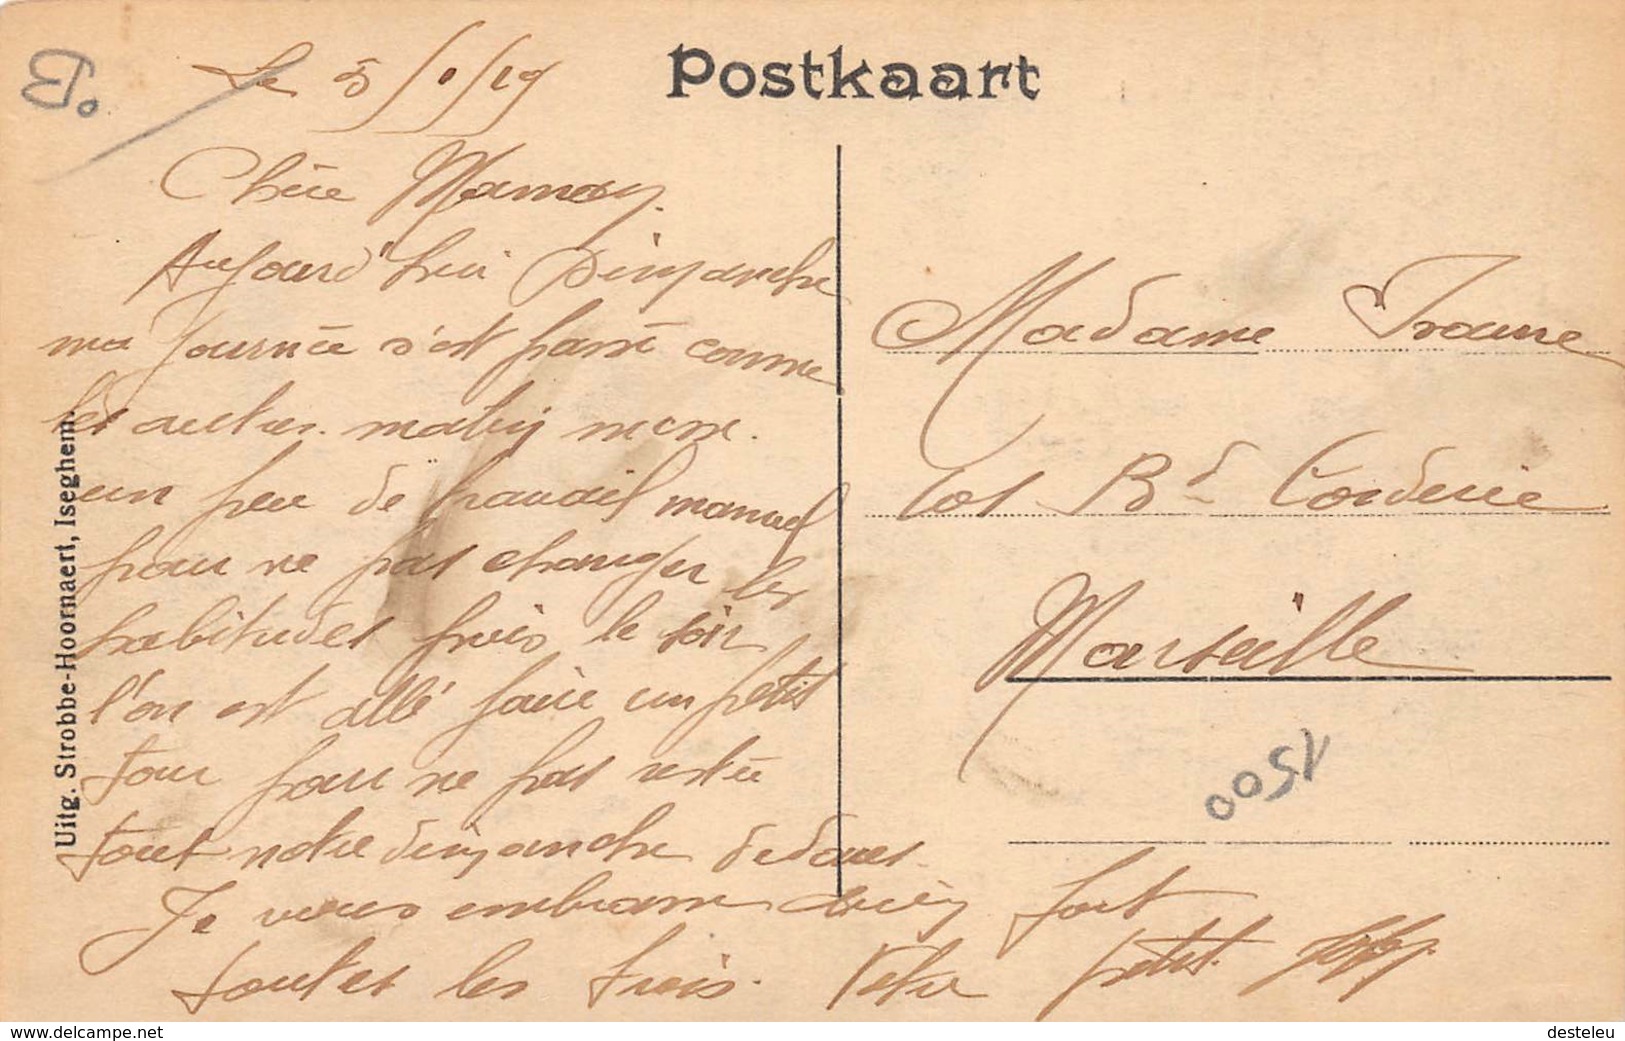 Postkaart
Le 5/1/19
Chère Maman.
Aujourd'hui Dimanche
ma Journée s'est passé comme
les autres. matin messe.
un peu de travail manuel
pour ne pas changer les
habitudes puis le soir
l'on est allé faire un petit
tour pour ne pas resté
tout notre dimanche dedans
Je vous embrasse bien fort
toutes les trois. Votre petit
Madame
101 Bd Corderie
Marseille
1500
Uitg. Strobbe-Hoornaert, Iseghem.
www.delcampe.net
desteleu